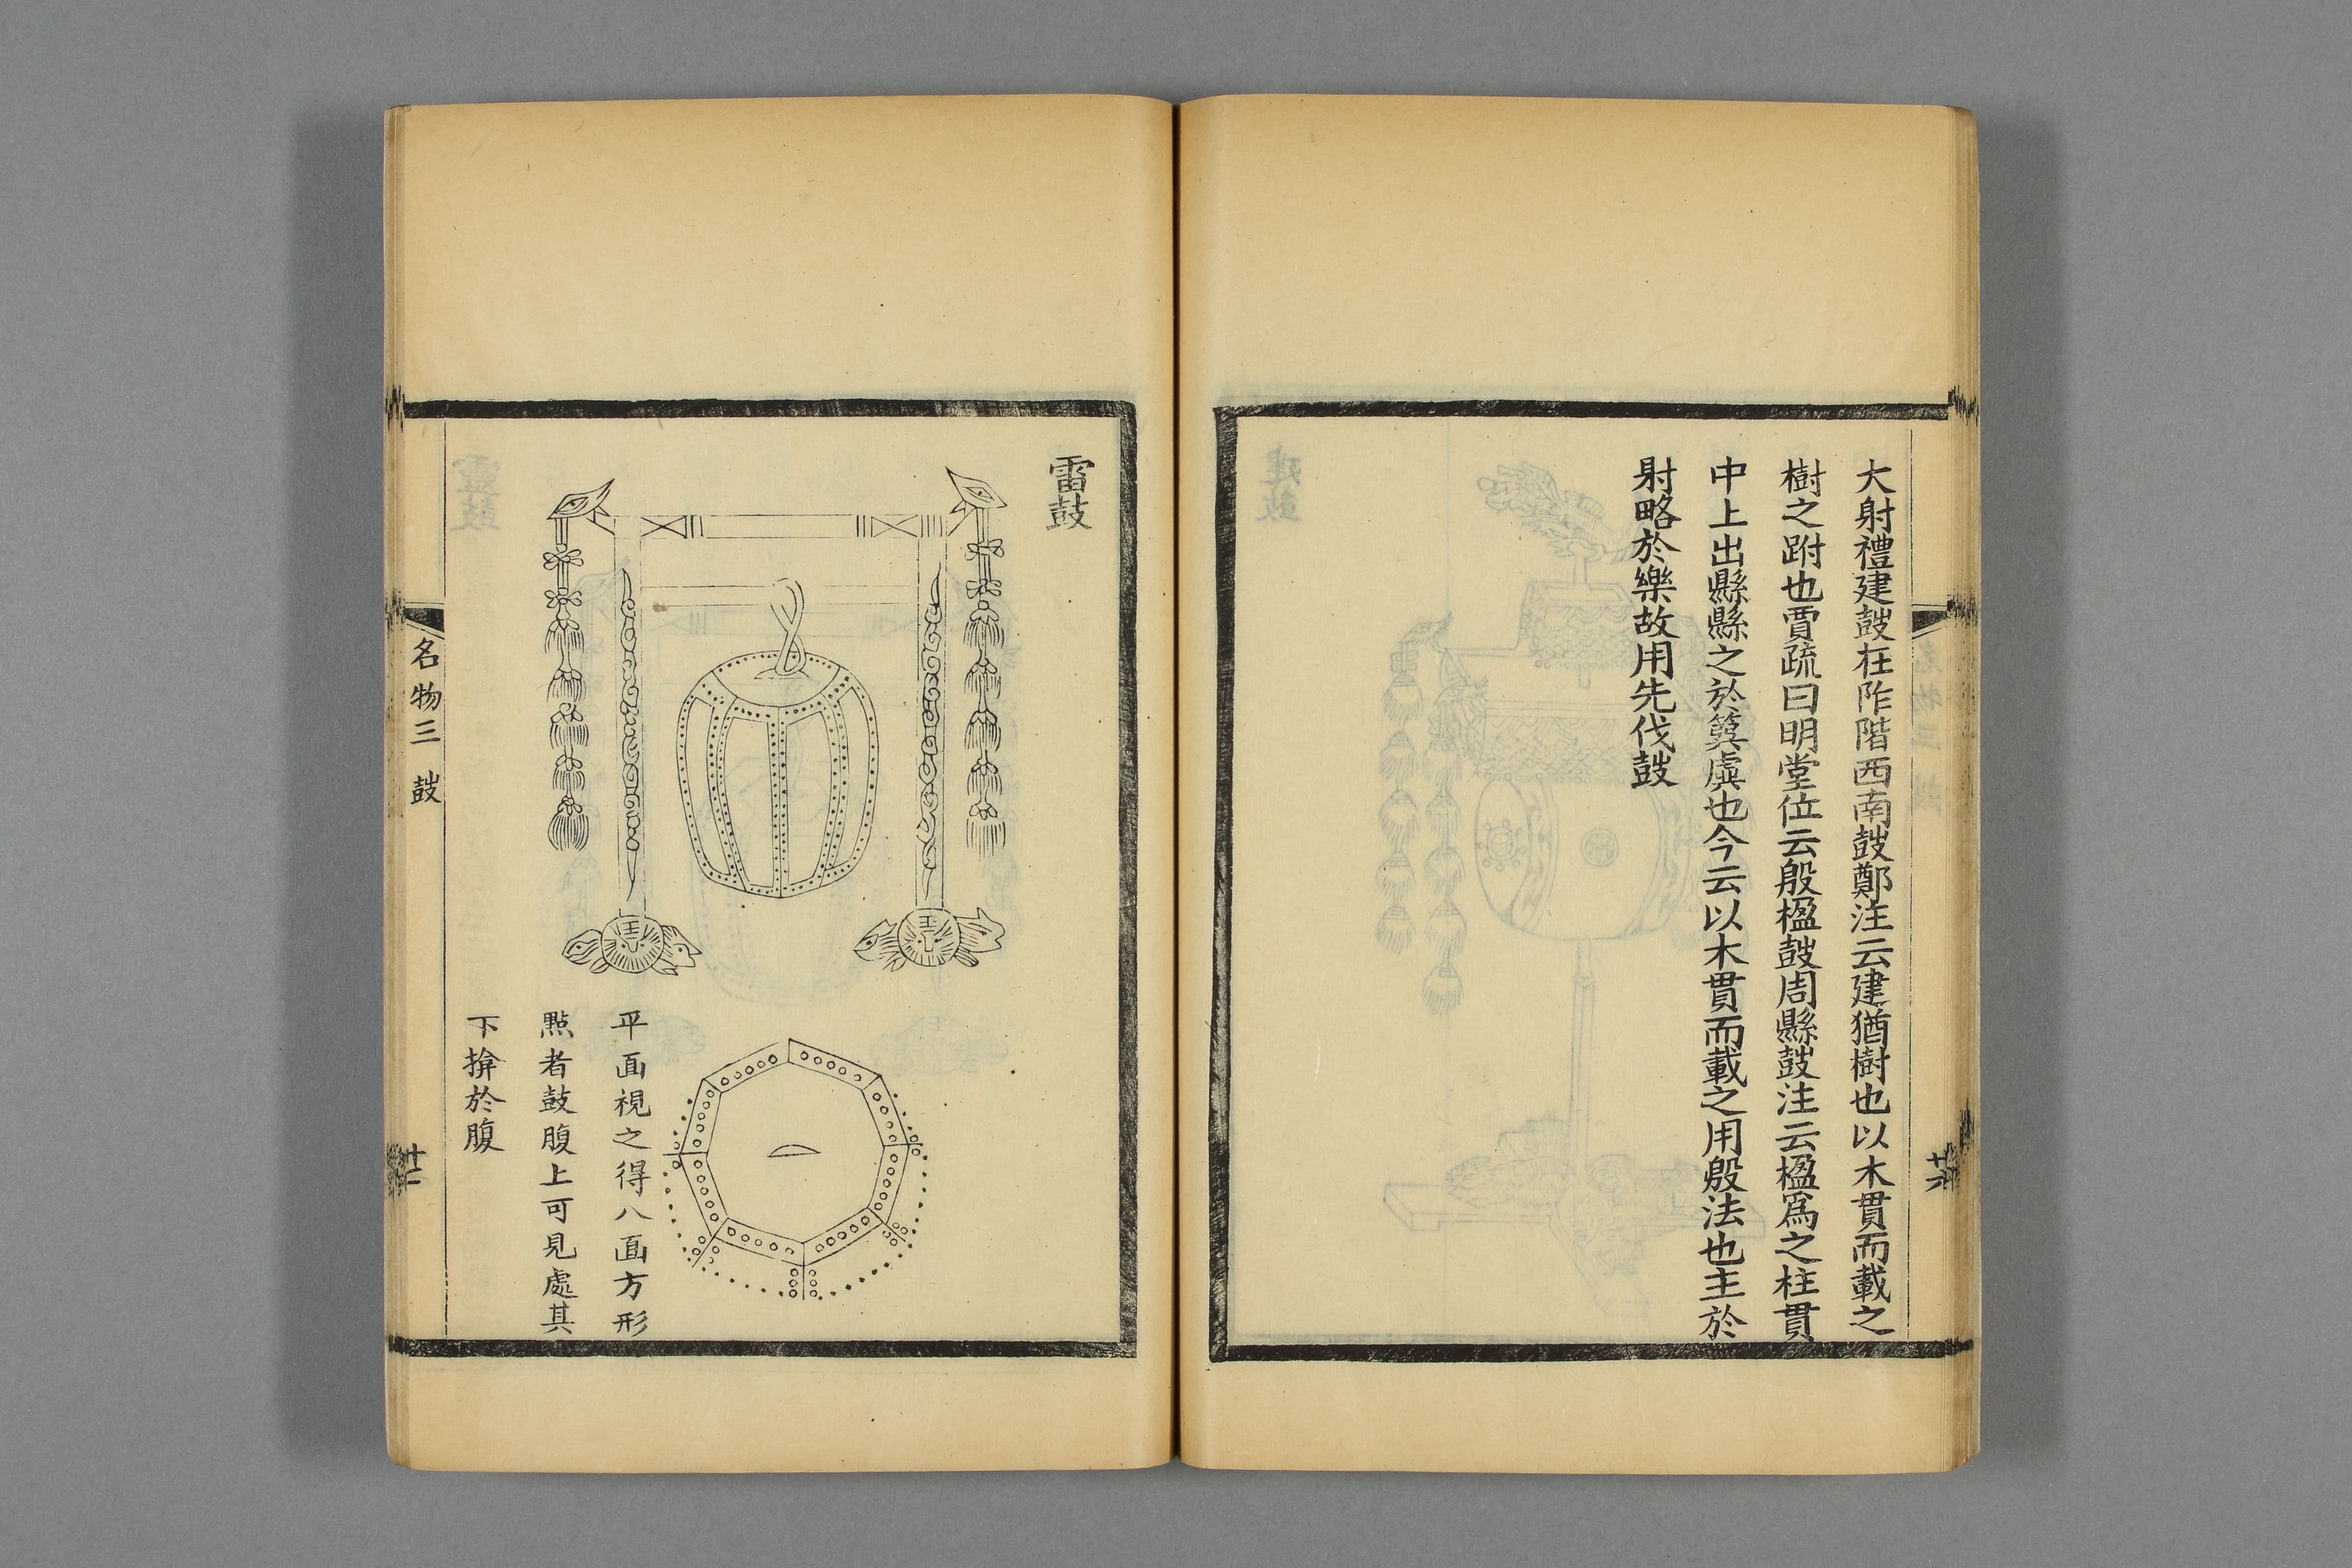 大射禮建鼓在阼階西南鼓鄭注云建猶樹也以木貫而載之
樹之跗也賈疏曰明堂位云殷楹鼓周縣鼓注云楹爲之柱貫
中上出縣縣之於簨虡也今云以木貫而載之用殷法也主於
射略於樂故用先伐鼓
雷鼓
平面視之得八面方形
點者鼓腹上可見處其
下揜於腹
名物三 鼓